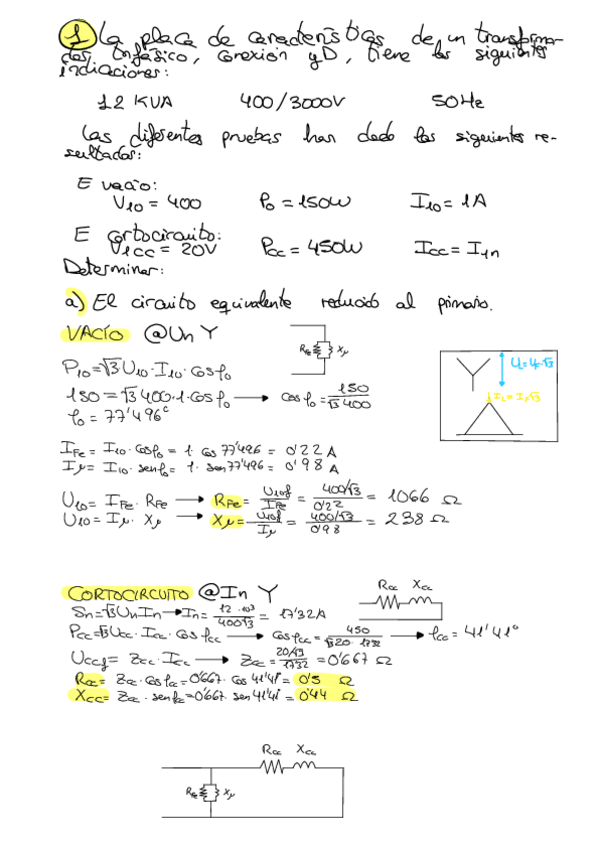 1 La placa de características de un transforma-
dor trifásico, conexión yD, tiene las siguientes
indicaciones:
12 KVA 400/3000V 50Hz
Las diferentes pruebas han dado los siguientes re-
sultados:
E vacío:
U10 = 400 P0 = 150W I10 = 1A
E cortocircuito:
V1CC = 20V Pcc = 450W Icc = I1n
Determinar:
a) El circuito equivalente reducido al primario.
VACÍO @Un Y
RFe Xμ
P10 = √3 U10 · I10 · cosφ0
150 = √3 400 · 1 · cosφ0 → cosφ0 = 150/√3 400
φ0 = 77'496°
UL = UF·√3
IL = IF√3
IFe = I10 · cosφ0 = 1 · cos 77'496 = 0'22 A
Iμ = I10 · senφ0 = 1 · sen 77'496 = 0'98 A
U10 = IFe · RFe → RFe = U10f/IFe = 400/√3/0'22 = 1066 Ω
U10 = Iμ · Xμ → Xμ = U10f/Iμ = 400/√3/0'98 = 238 Ω
CORTOCIRCUITO @In Y
Rcc Xcc
Sn = √3 Un In → In = 12·10³/400√3 = 17'32A
Pcc = √3 Ucc · Icc · cosφcc → cosφcc = 450/√3 20·17'32 → φcc = 41'41°
Uccf = Zcc · Icc → Zcc = 20/√3/17'32 = 0'667 Ω
Rcc = Zcc · cosφcc = 0'667 · cos 41'41 = 0'5 Ω
Xcc = Zcc · senφcc = 0'667 · sen 41'41 = 0'44 Ω
Rcc Xcc
RFe Xμ